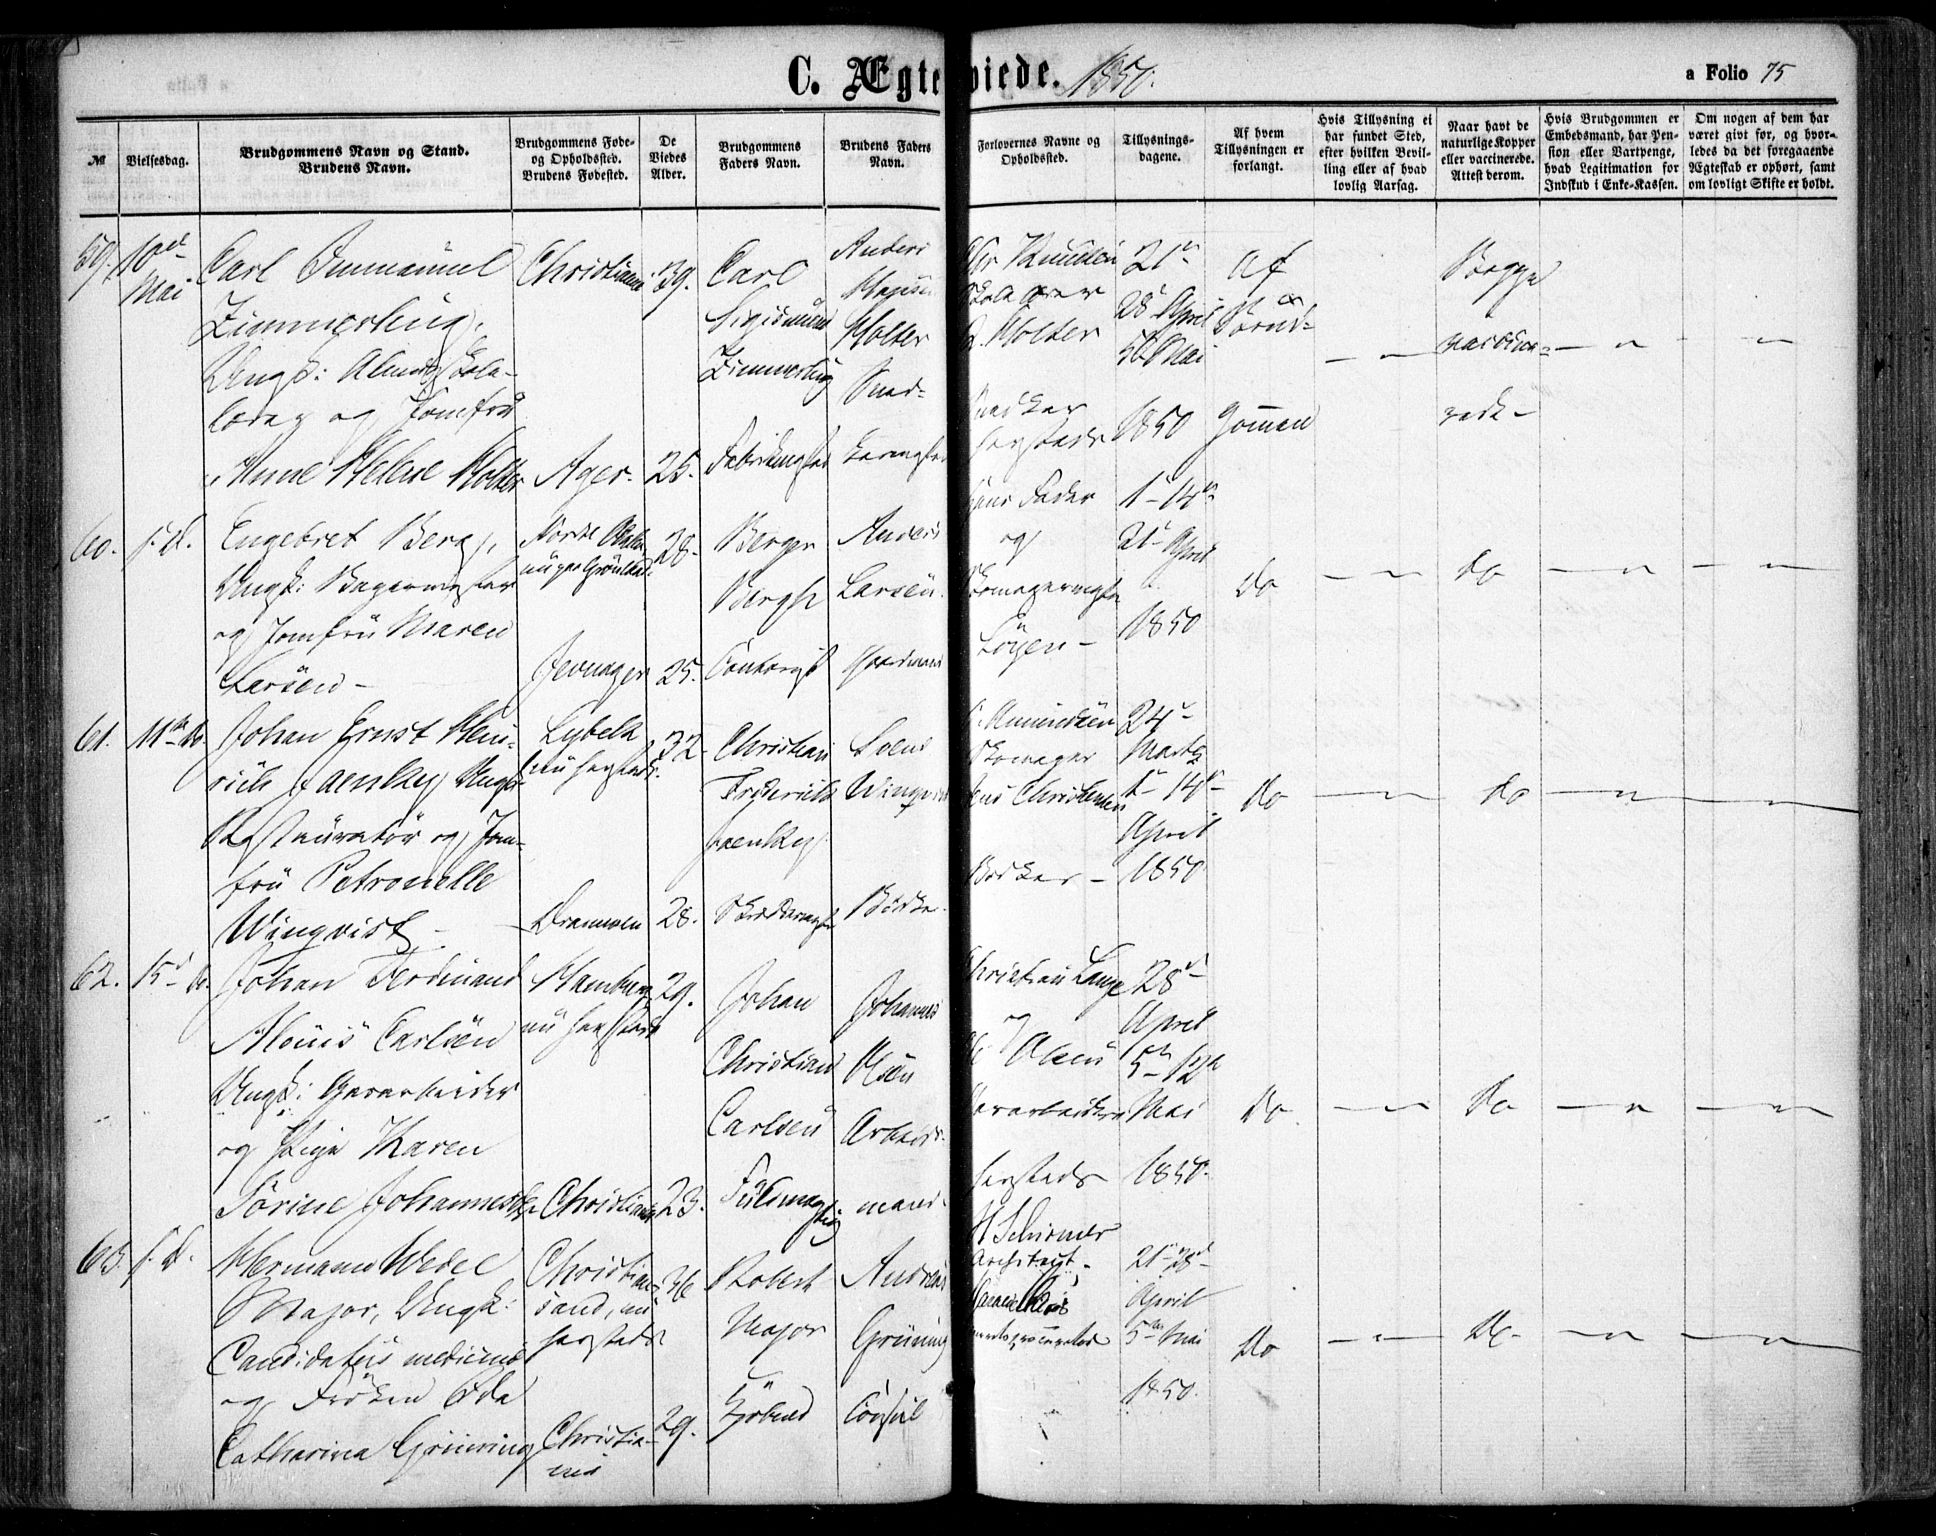 C. Ægteviede. 1850.
a Folio 75
№
Vielsesdag.
Brudgommens Navn og Stand.
Brudens Navn.
Brudgommens Føde-
og Opholdssted.
Brudens Fødested.
De
Viedes
Alder.
Brudgommens
Faders Navn.
Brudens Faders
Navn.
Forlovernes Navne og
Opholdssted.
Tillysnings-
dagene.
Af hvem
Tillysningen er
forlangt.
Hvis Tillysning ei
har fundet Sted,
efter hvilken Bevil-
ling eller af hvad
lovlig Aarsag.
Naar havt de
naturlige Kopper
eller vaccinerede.
Attest derom.
Hvis Brudgommen er
Embedsmand, har Pen-
sion eller Vartpenge,
hvad Legitimation for
Indskud i Enke-Kassen.
Om nogen af dem har
været givt før, og hvor-
ledes da det foregaaende
Ægteskab er ophørt, samt
om lovligt Skifte er holdt.
59.
10de
Mai
Carl Immanuel
Zimmerling,
Ungk:
og Jomfru
Anne Helene Holter
Christiania
Ager.
39.
25.
Carl
Sigismund
Zimmerling
Fabrikmester
Anders
Holter
Sned-
kermester
Knudsen
Holter
21de
28de April
5te Mai
1850
af
Brud-
gommen
Begge
vaccine-
rede -
60.
s. d.
Engebret Berg,
Ungk: Bagermester
og Jomfru Maren
Larsen -
Jevnager
28.
25.
Anders
Larsen.
Gaardmand
hans Fader
og
Skomagermester
1ste 14de
21de April
1850
do
do
61.
11te do.
Johan Ernst Hein-
rich Jaenkey Ungk:
Restauratør og Jom-
fru Petronelle
Winqvist -
Lybek
nu hersteds.
Drammen
32.
28.
Christian
Frederich
Jaenkey
Svend
Winqvist
Amundsen
Skomager
Jens Christensen
24de
Marts
1ste 14de
April
1850
do
do
62.
15de do.
Johan Ferdinand
Alouis Carlsen
Ungk: Garverarbeider
og Pige Karen
Sørine Johannesd.
Hamburg
nu hersteds
Christiania
29.
23.
Johan
Christian
Carlsen
Fuldmægtig
Johannes
Olsen
Arbeids-
mand.
Christian Lange
og
Olsen
hersteds
28de
April
5te 12te
Mai
1850.
do
do
63.
s. d.
Hermann Wedel
Major, Ungk:
Candidatus medicinæ
og Frøken Ida
Catharina Grüning
Christian-
sand, nu
hersteds
Christia-
nia
36
29.
Robert
Major
Kjøbmd
Andreas
Grüning
Consul
H Schirmer
Architect.
21de 28de
April
5te Mai
1850.
do
do